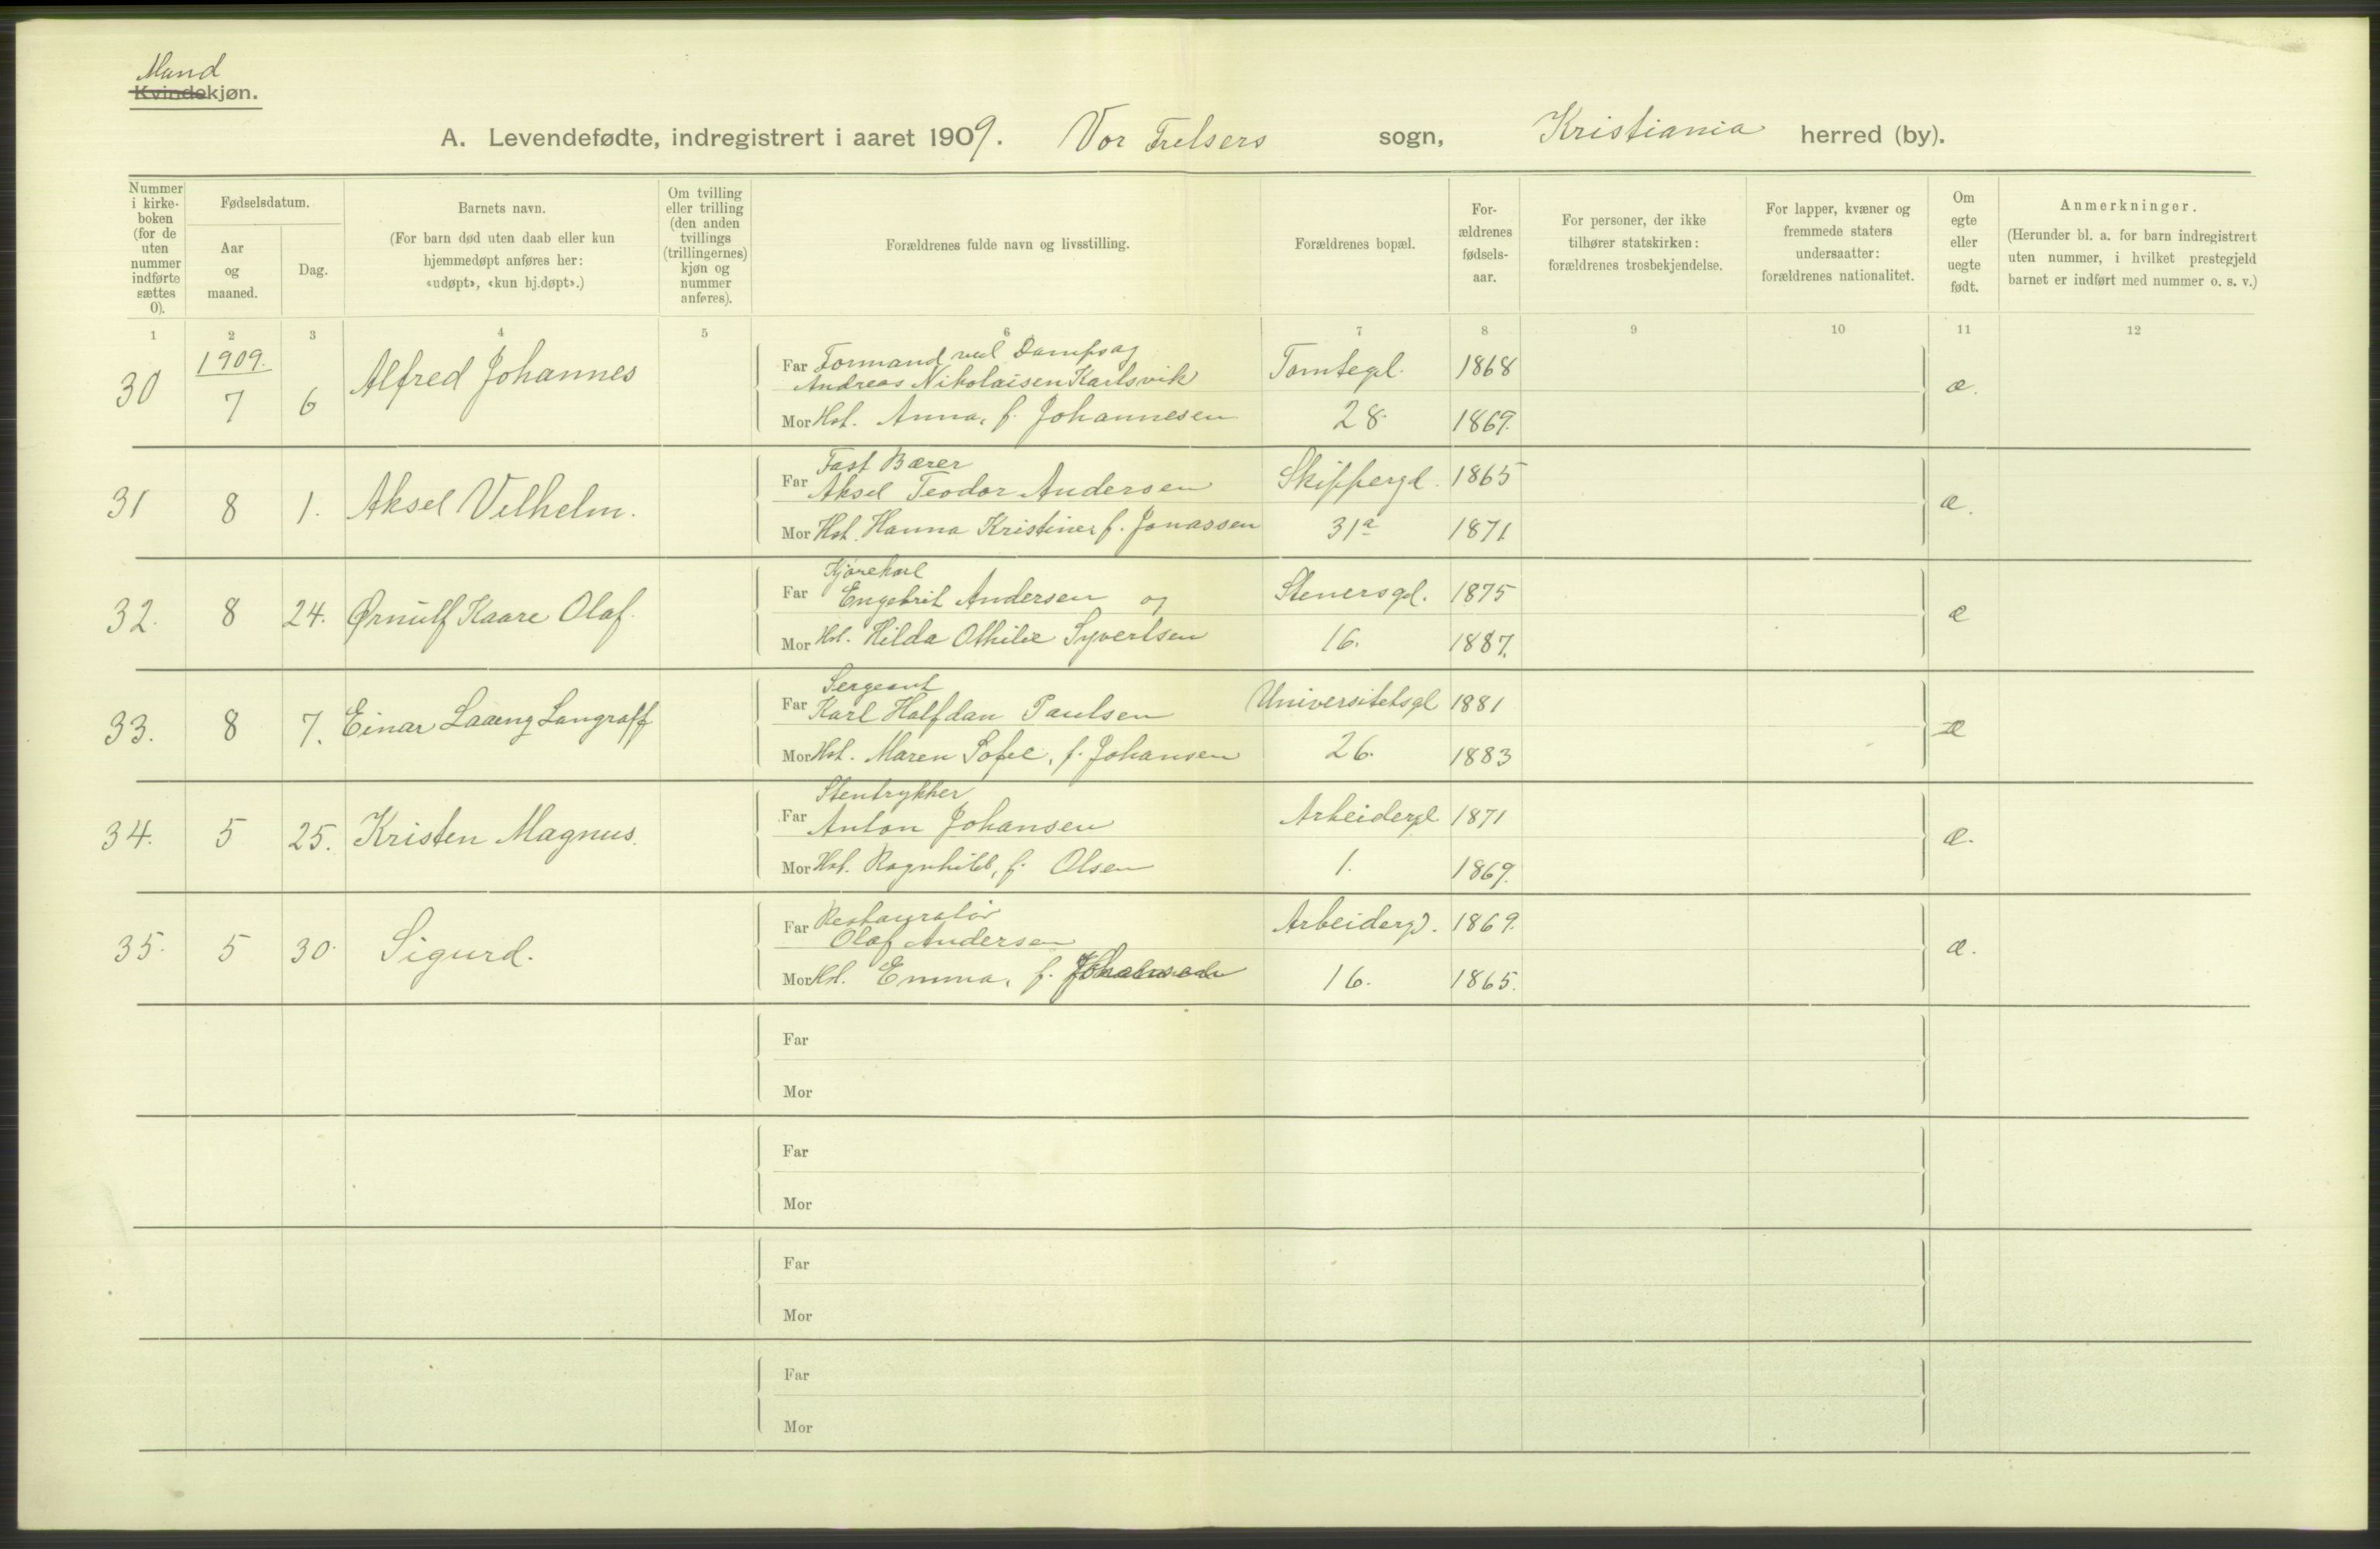 Mand
Kvindekjøn.
A. Levendefødte, indregistrert i aaret 1909. Vor Frelsers sogn, Kristiania herred (by).
Nummer i kirke-boken (for de uten nummer indførte sættes 0).
Fødselsdatum.
Aar og maaned.
Dag.
Barnets navn.
(For barn død uten daab eller kun hjemmedøpt anføres her: «udøpt», «kun hj.døpt».)
Om tvilling eller trilling (den anden tvillings (trillingernes) kjøn og nummer anføres).
Forældrenes fulde navn og livsstilling.
Forældrenes bopæl.
For-ældrenes fødsels-aar.
For personer, der ikke tilhører statskirken: forældrenes trosbekjendelse.
For lapper, kvæner og fremmede staters undersaatter: forældrenes nationalitet.
Om egte eller uegte født.
Anmerkninger.
(Herunder bl. a. for barn indregistrert uten nummer, i hvilket prestegjeld barnet er indført med nummer o. s. v.)
1 2 3 4 5 6 7 8 9 10 11 12
1909.
30 7 6 Alfred Johannes
Far Formand ved Dampsag
Andreas Nikolaisen Karlsvik Tomtegd. 1868
Mor Hst. Anna, f. Johannesen 28. 1869. æ.
31 8 1. Aksel Vilhelm.
Far Fast Bærer
Aksel Teodor Andersen Skippergd. 1865
Mor Hst. Hanna Kristine, f. Jonassen 31a 1871 æ.
32. 8 24. Ørnulf Kaare Olaf.
Far Kjørekarl
Engebrit Andersen og Stenersgd. 1875
Mor Hst. Hilda Othilie Syvertsen 16. 1887. æ
33. 8 7. Einar Laaeng Langraff
Far Sergeant
Karl Halfdan Paulsen Universitetsgd. 1881
Mor Hst. Maren Sofie, f. Johansen 26. 1883 æ
34. 5 25. Kristen Magnus.
Far Stentrykker
Anton Johansen Arbeidergd. 1871
Mor Hst. Ragnhild, f. Olsen 1. 1869. æ.
35. 5 30. Sigurd.
Far Restauratør
Olaf Andersen Arbeidergd. 1869.
Mor Hst. Emma, f. 16. 1865. æ.
Far
Mor
Far
Mor
Far
Mor
Far
Mor